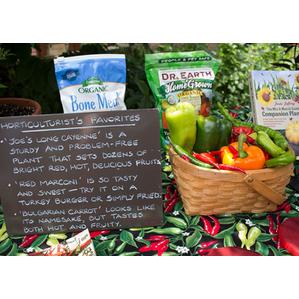 ORGANIC
Bone Meal
PEOPLE & PET SAFE
DR. EARTH
ORGANIC
Home Grown
Companion Plant
HORTICULTURIST'S FAVORITES
'JOE'S LONG CAYENNE' IS A
BUSY AND PROBLEM-FREE
PLANT THAT SETS DOZENS OF
BRIGHT RED, HOT, DELICIOUS FRUITS.
'RED MARCONI' IS SO TASTY
AND SWEET - TRY IT ON A
TURKEY BURGER OR SIMPLY FRIED.
'BULGARIAN CARROT' LOOKS LIKE
ITS NAMESAKE, BUT TASTES
BOTH HOT AND FRUITY.